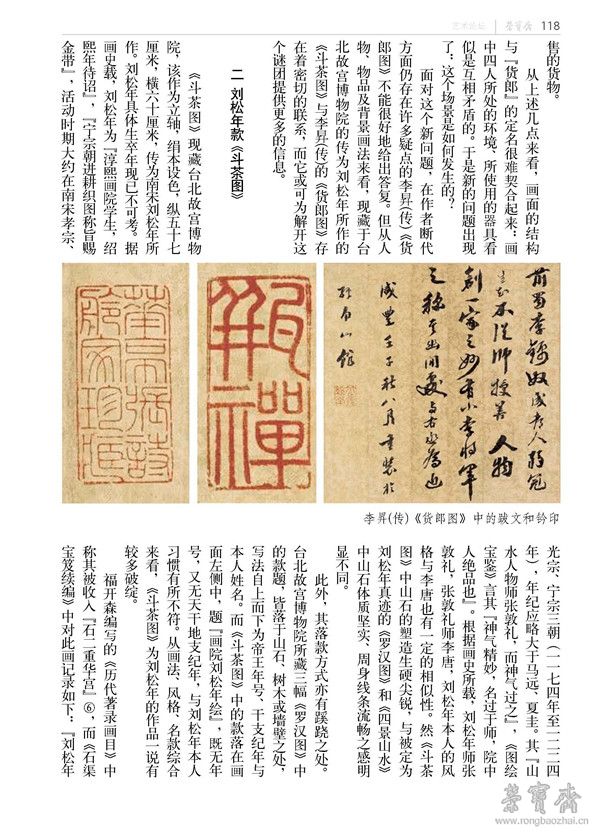 艺术论坛
荣宝斋
118
售的货物。
从上述几点来看，画面的结构
与『货郎』的定名很难契合起来：画
中四人所处的环境、所使用的器具看
似是互相矛盾的。于是新的问题出现
了：这个场景是如何发生的？
面对这个新问题，在作者断代
方面仍存在许多疑点的李昇(传)《货
郎图》不能很好地给出答复。但从人
物、物品及背景画法来看，现藏于台
北故宫博物院的传为刘松年所作的
《斗茶图》与李昇(传)的《货郎图》存
在着密切的联系，而它或可为解开这
个谜团提供更多的信息。
二 刘松年款《斗茶图》
《斗茶图》现藏台北故宫博物
院，该作为立轴，绢本设色，纵五十七
厘米，横六十厘米，传为南宋刘松年所
作。刘松年具体生卒年现已不可考。据
画史载，刘松年为『淳熙画院学生，绍
熙年待诏』，『宁宗朝进耕织图称旨赐
金带』，活动时期大约在南宋孝宗、
前蜀李錦奴成都人弱冠
不從師授善人物
創一家之妙有小李將軍
之稱
咸豐壬子秋八月重裝於
李昇(传)《货郎图》中的跋文和钤印
光宗、宁宗三朝（一一七四年至一二二四
年），年纪应略大于马远、夏圭。其『山
水人物师张敦礼，而神气过之』，《图绘
宝鉴》言其『神气精妙，名过于师，院中
人绝品也』。根据画史所载，刘松年师张
敦礼，张敦礼师李唐，刘松年本人的风
格与李唐也有一定的相似性。然《斗茶
图》中山石的塑造生硬尖锐，与被定为
刘松年真迹的《罗汉图》和《四景山水》
中山石体质坚实、周身线条流畅之感明
显不同。
此外，其落款方式亦有蹊跷之处。
台北故宫博物院所藏三幅《罗汉图》中
的款题，皆落于山石、树木或墙壁之处，
写法自上而下为帝王年号、干支纪年与
本人姓名。而《斗茶图》中的款落在画
面左侧中，题『画院刘松年绘』，既无年
号，又无天干地支纪年，与刘松年本人
习惯有所不符。从画法、风格、名款综合
来看，《斗茶图》为刘松年的作品一说有
较多破绽。
福开森编写的《历代著录画目》中
称其被收入『石二重华宫』⑥，而《石渠
宝笈续编》中对此画记录如下：『刘松年
荣宝斋
www.rongbaozhai.cn